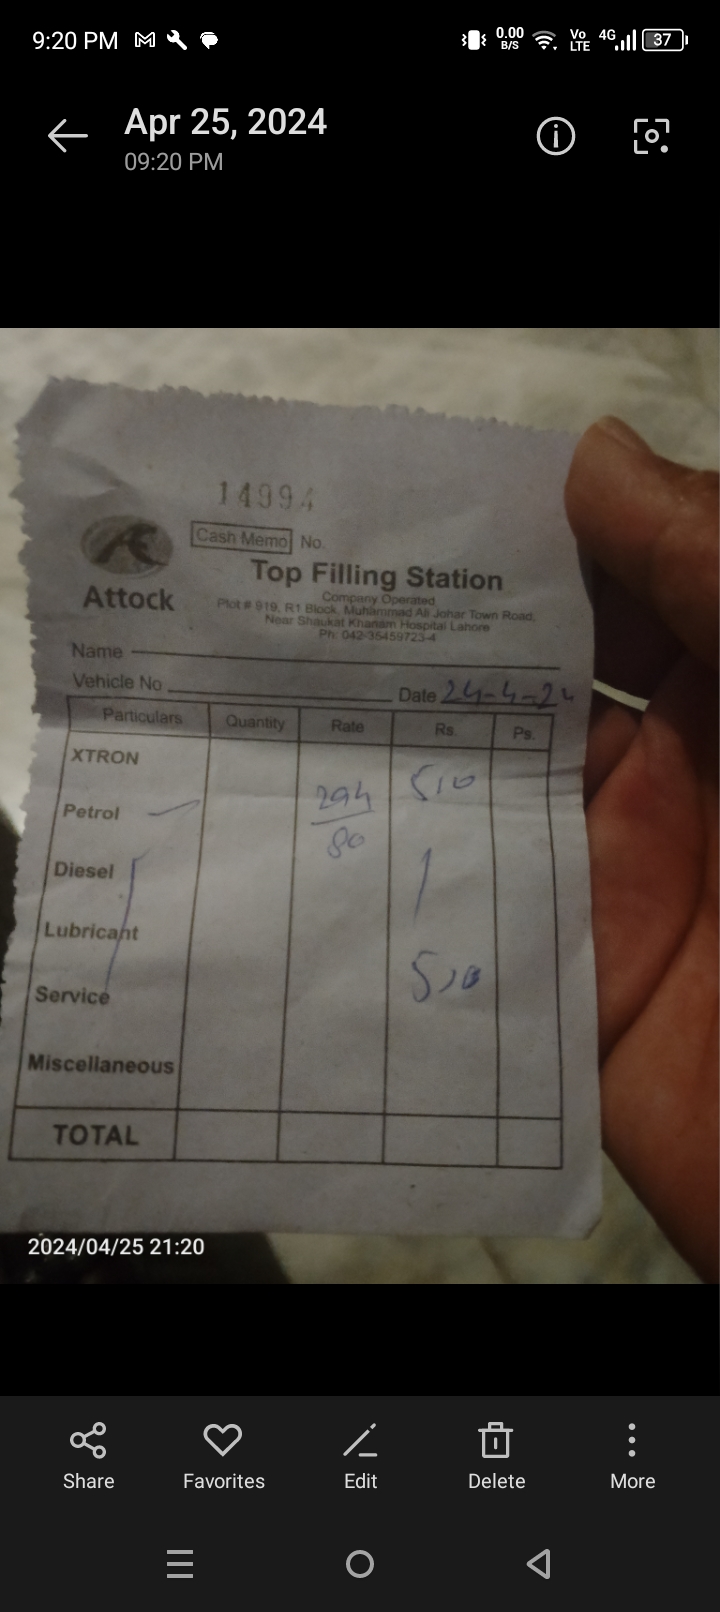 9:20 PM 0.00 B/S Vo LTE 4G 37
Apr 25, 2024
09:20 PM
14994
Cash Memo No.
Attock
Top Filling Station
Company Operated
Plot # 919, R1 Block, Muhammad Ali Johar Town Road,
Near Shaukat Khanam Hospital Lahore
Ph: 042-35459723-4
Name
Vehicle No Date 24-4-24
Particulars Quantity Rate Rs. Ps.
XTRON
Petrol 294 510
80
Diesel
Lubricant
Service 510
Miscellaneous
TOTAL
2024/04/25 21:20
Share Favorites Edit Delete More